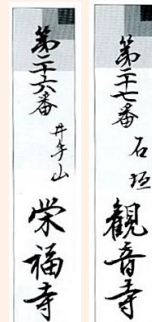 第二十七番
石垣
観音寺
第二十六番
井手山
栄福寺